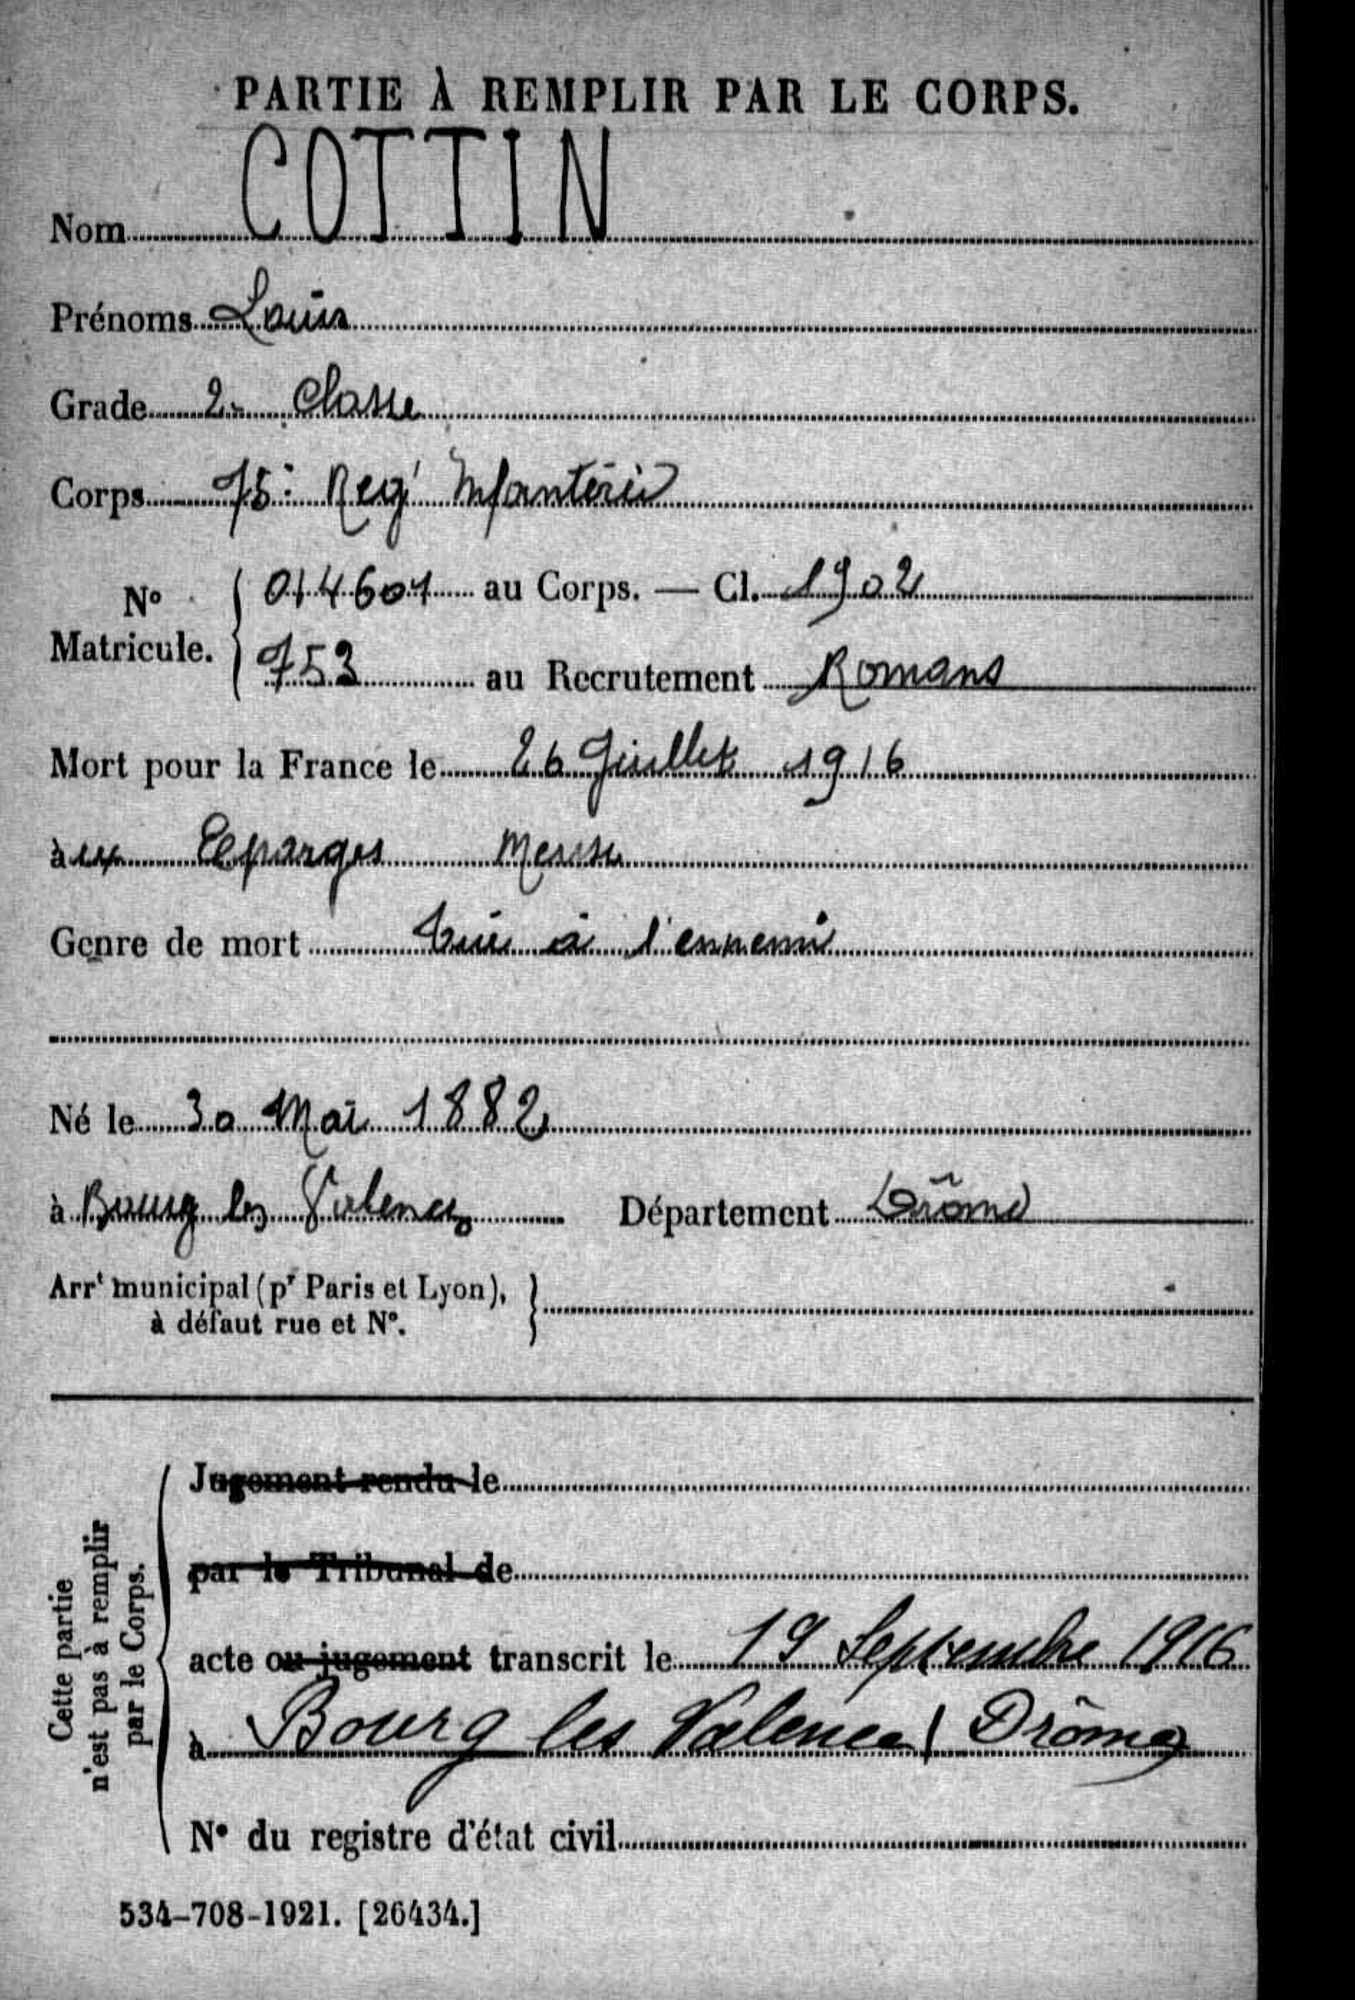 PARTIE À REMPLIR PAR LE CORPS.
Nom COTTIN
Prénoms Louis
Grade 2e Classe
Corps 75e Regt Infanterie
No Matricule. 014601 au Corps. — Cl. 1902
753 au Recrutement Romans
Mort pour la France le 26 Juillet 1916
aux Eparges Meuse
Genre de mort tué à l'ennemi
Né le 30 Mai 1882
à Bourg les Valence Département Drôme
Arrt municipal (pr Paris et Lyon),
à défaut rue et No.
Cette partie
n'est pas à remplir
par le Corps.
Jugement rendu le
par le Tribunal de
acte ou jugement transcrit le 19 Septembre 1916
à Bourg les Valence (Drôme
No du registre d'état civil
534-708-1921. [26434.]